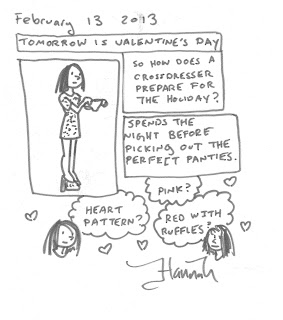 February 13 2013
TOMORROW IS VALENTINE'S DAY
SO HOW DOES A
CROSSDRESSER
PREPARE FOR
THE HOLIDAY?
SPENDS THE
NIGHT BEFORE
PICKING OUT THE
PERFECT PANTIES.
PINK?
HEART
PATTERN?
RED WITH
RUFFLES?
Hannah